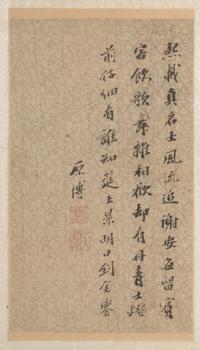 熙載真名士風流追謝安每留賓
客飲歌舞雜和歡却有丹青士燈
前仔細看誰知筵上景明日到金鑾
原博